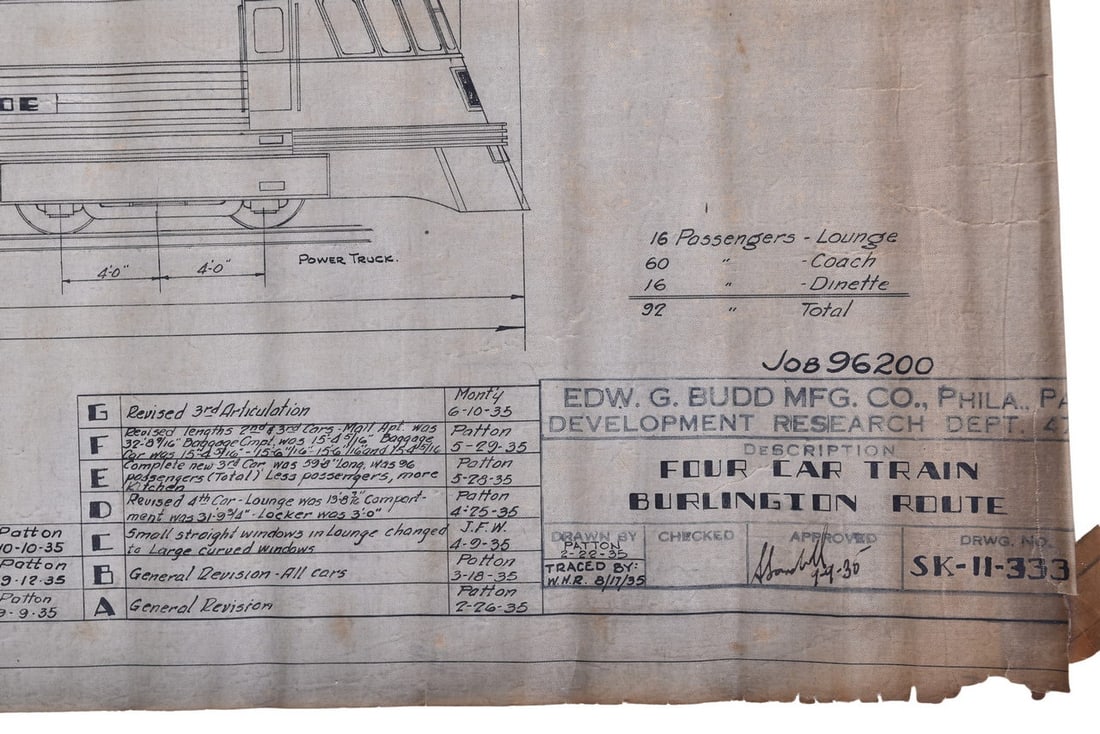 OE
4'-0" 4'-0"
POWER TRUCK.
16 Passengers - Lounge
60 " - Coach
16 " - Dinette
92 " Total
JOB 96200
G Revised 3rd Articulation Monty 6-10-35
F Revised lengths 2nd & 3rd Cars - Mail Apt. was
32'-8 9/16" Baggage Cmpt. was 15'-4 5/16" Baggage
Car was 15'-4 5/16" - 15'-6 1/16" - 15'-6 1/16" and 15'-4 5/16
Patton 5-29-35
E Complete new 3rd Car was 59'-8" Long, was 96
passengers (Total) Less passengers, more
Kitchen
Patton 5-28-35
D Revised 4th Car - Lounge was 13'-8 3/4" Compart-
ment was 31'-9 3/4" - Locker was 3'-0"
Patton 4-25-35
C Small straight windows in Lounge changed
to Large curved windows
J.F.W. 4-9-35
B General Revision - All cars Patton 3-18-35
A General Revision Patton 2-26-35
Patton
10-10-35
Patton
9-12-35
Patton
9-9-35
EDW. G. BUDD MFG. CO., PHILA., PA
DEVELOPMENT RESEARCH DEPT. 4
DESCRIPTION
FOUR CAR TRAIN
BURLINGTON ROUTE
DRAWN BY
PATTON
2-22-35
TRACED BY:
W.H.R. 8/17/35
CHECKED
APPROVED
DRWG. NO.
SK-11-333